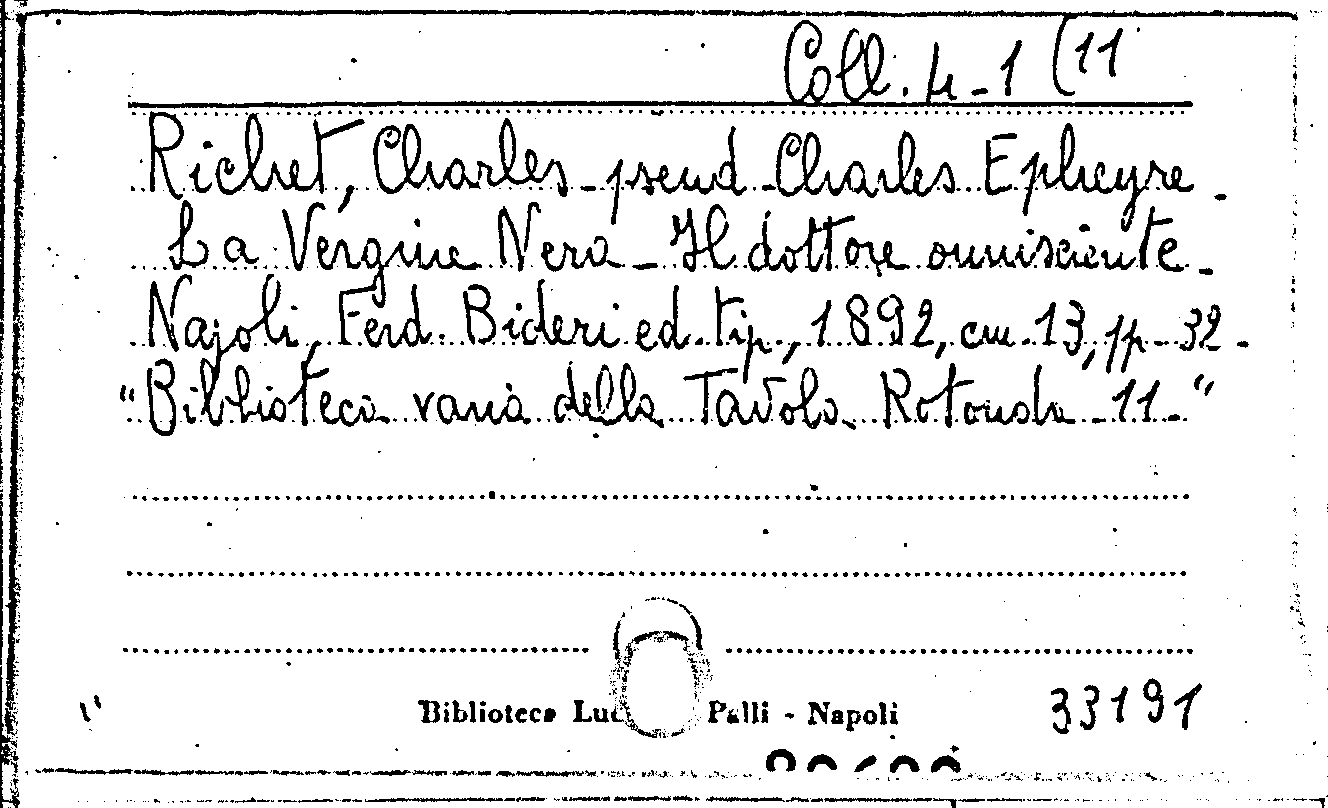 Coll. 4-1 (11
Richet, Charles - pseud - Charles Epheyre -
La Vergine Nera - Il dottore omnisciente -
Napoli, Ferd. Bideri ed. tip., 1892, cm. 13, pp. 32 -
"Biblioteca varia della Tavola Rotonda - 11 - "
Biblioteca Luc Palli - Napoli
33191